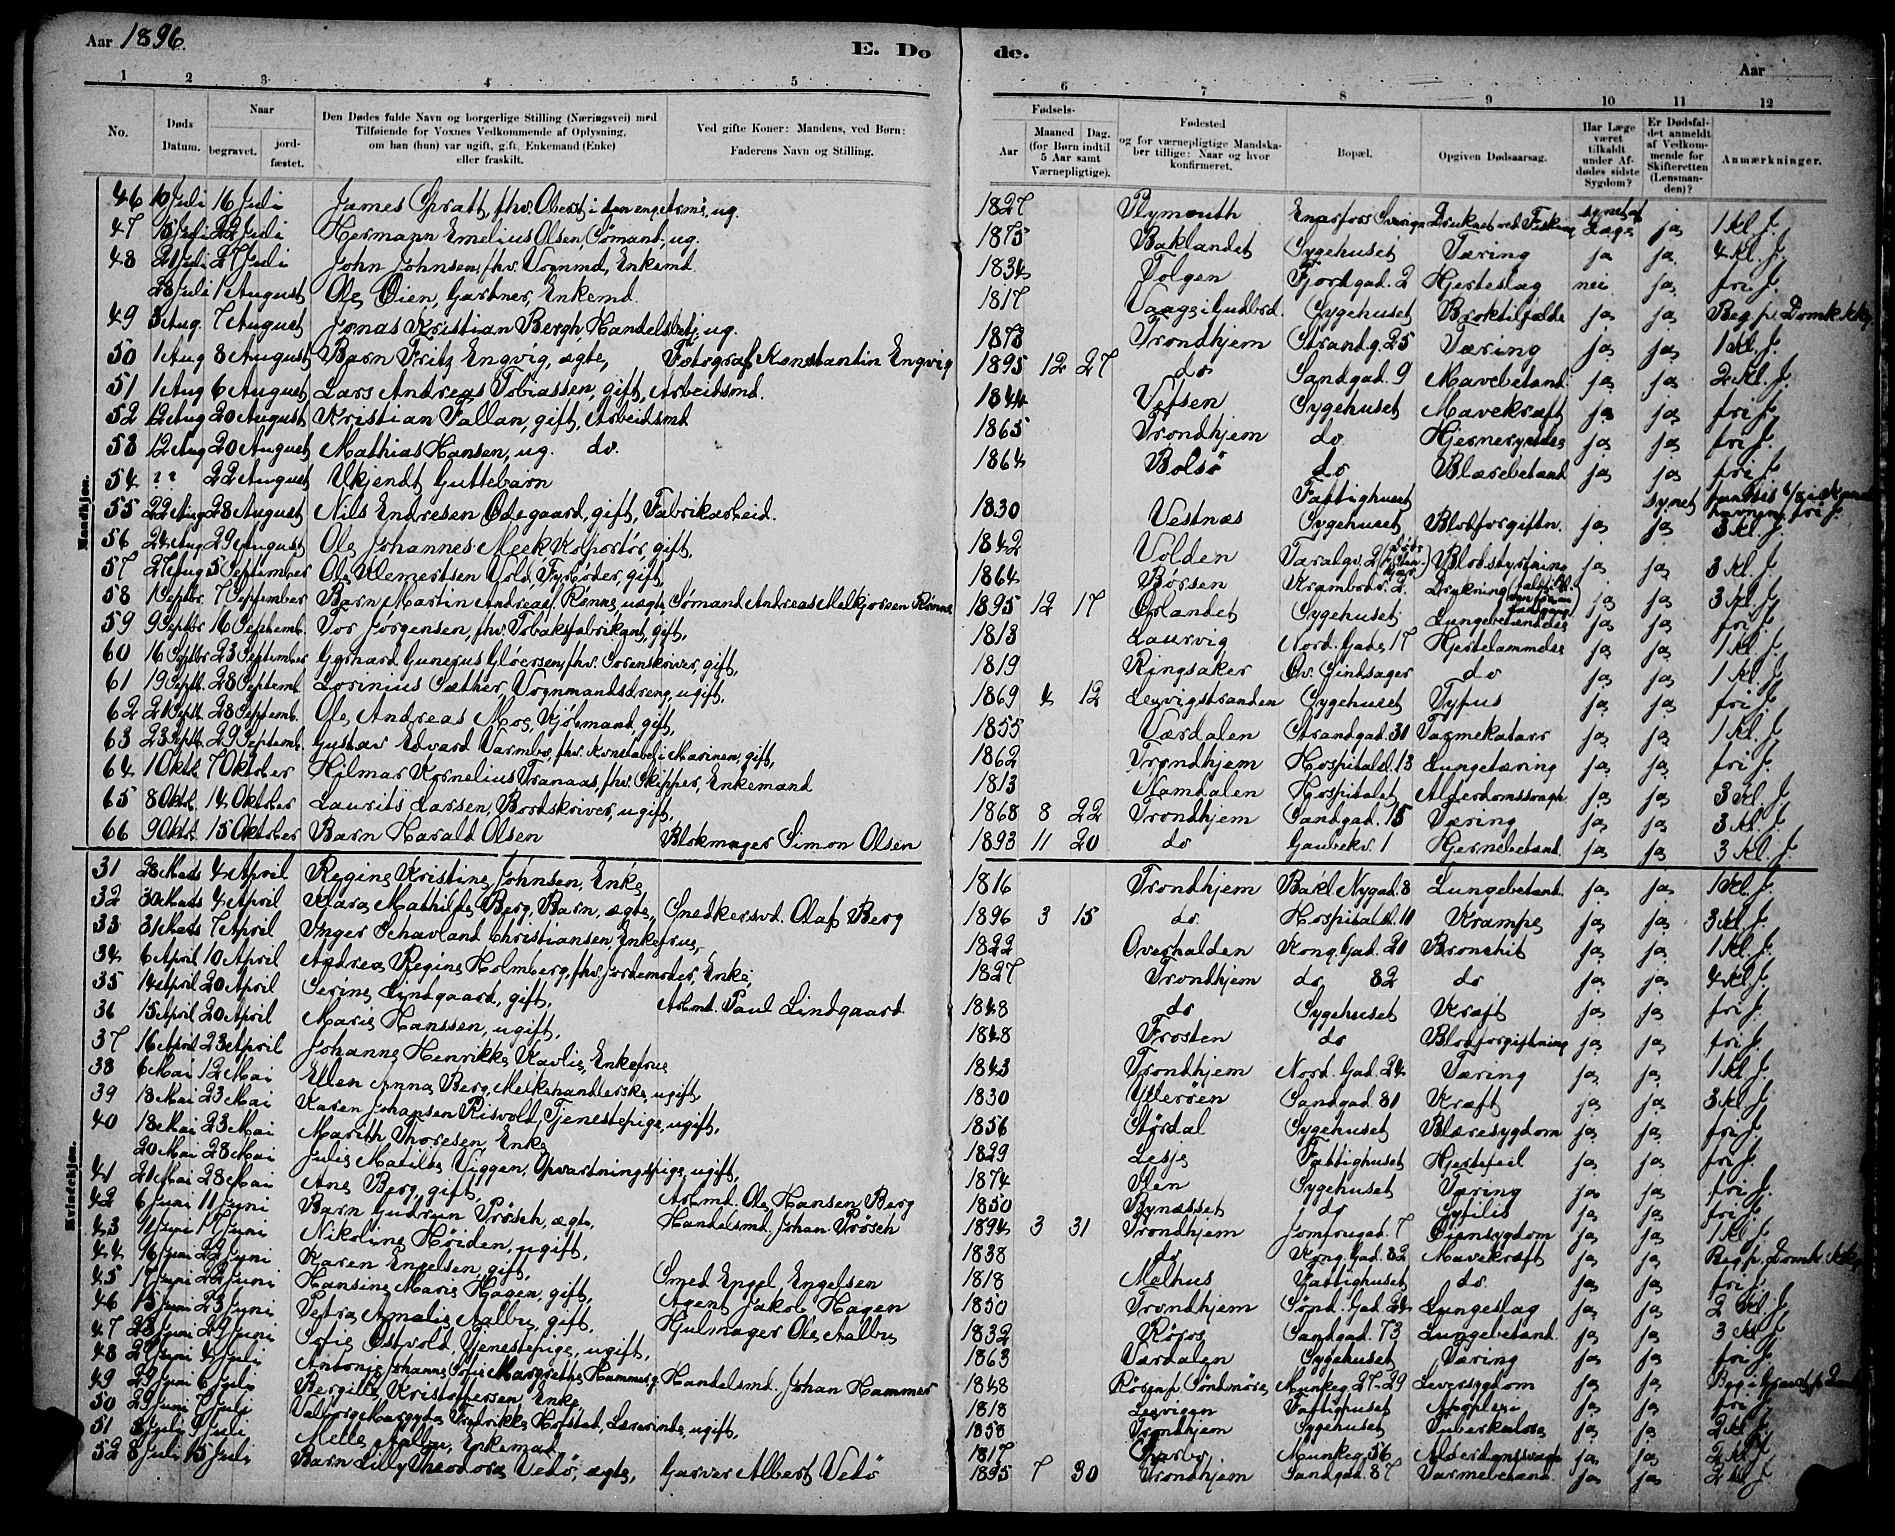 Aar 1896.
E. Dø de. Aar
1 2 3 4 5 6 7 8 9 10 11 12
No. Døds Datum. Naar begravet. jordfæstet. Den Dødes fulde Navn og borgerlige Stilling (Næringsvei) med Tilføiende for Voxnes Vedkommende af Oplysning, om han (hun) var ugift, gift, Enkemand (Enke) eller fraskilt. Ved gifte Koner: Mandens, ved Børn: Faderens Navn og Stilling. Fødsels- Aar Maaned Dag. (for Børn indtil 5 Aar samt Værnepligtige). Fødested og for værnepligtige Mandskaber tillige: Naar og hvor konfirmeret. Bopæl. Opgiven Dødsaarsag. Har Læge været tilkaldt under Afdødes sidste Sygdom? Er Dødsfaldet anmeldt af Vedkommende for Skifteretten (Lensmanden)? Anmærkninger.
Mandkjøn.
46 10 Juli 16 Juli James Spratt, fhv. Oberst i den eng. Arme, ug. 1827 Plymouth Enafors Sverige Druknet ved Fiskeri synet af Læge ja 1 kl. J.
47 15 Juli 22 Juli Hermann Emelius Olsen, Sømand, ug. 1875 Baklandet Sygehuset Tæring ja ja 4 kl. J.
48 21 Juli 27 Juli John Johnsen, fhv. Vognmd., Enkemd. 1834 Tolgen Fjordgad. 2 Hjerteslag nei ja fri J.
28 Juli 1 August Ole Øien, Gartner, Enkemd. 1817 Vaage i Gudbrd. Sygehuset Broktilfælde ja ja Beg. p. Domk. Kkg.
49 3 Aug. 7 August Jonas Kristian Bergh, Handelsbetj. ug. 1873 Trondhjem Strandg. 25 Tæring ja ja 1 kl. J.
50 1 Aug 8 August Barn Fritz Engvig, ægte, Fotograf Konstantin Engvig 1895 12 27 do Sandgad. 9 Mavebetænd. ja ja 2 kl. J.
51 1 Aug 6 August Lars Andreas Tobiassen, gift, Arbeidsmd. 1844 Vefsen Sygehuset Mavekræft ja ja fri J.
52 12 Aug 20 August Kristian Fallan, gift, Arbeidsmd 1865 Trondhjem do Hjernesyndes ja ja fri J.
53 12 Aug 20 August Mathias Hansen, ug. do. 1864 Bolsø do Blærebetænd ja ja fri J.
54 ? ? 22 August Ukjendt Guttebarn Fattighuset synet
55 22 Aug 28 August Nils Endresen Ødegaard, gift, Fabrikarbeid. 1830 Vestnæs Sygehuset Blodforgiftn. ja ja 3 kl. J.
56 24 Aug 29 August Ole Johannes Meek Kolportør, gift, 1842 Volden Blodstyrtning ja ja 3 kl. J.
57 27 Aug 5 September Ole Klemetsen Vold, Fyrbøder, gift, 1864 Børsen Krambodv. 2. Drukning ja ja 3 kl. J.
58 1 Septbr. 7 September Barn Martin Andreas Rønne, uægte Sømand Andreas Melkjorsen Rønne 1895 12 17 Ørlandet Sygehuset Lungebetændelse ja ja fri J.
59 9 Septbr 16 Septemb. Tor Jorgensen, fhv. Tobaksfabrikant, gift, 1813 Laurvig Nord. Gade 17 Hjertelammelse ja ja 1 kl. J.
60 16 Septbr 23 September Gerhard Gunerus Gløersen, fhv. Sorenskriver, gift, 1819 Ringsaker Øv. Singsager do ja ja 1 kl. J.
61 19 Septb. 28 Septemb. Lorinius Sæther, Vognmandsdreng, ugift, 1869 4 12 Lexvigstranden Sygehuset Tyfus ja ja fri J.
62 21 Septb. 28 Septemb. Ole Andreas Moe, Kjøbmand, gift, 1855 Værdalen Strandgad. 31 Tarmekatarr ja ja 1 kl. J.
63 23 Septb. 29 Septemb. Gustav Edvard Varmbo, fhv. Konstabel i Marinen, gift, 1862 Trondhjem Hospitalsl. 13 Lungetæring ja ja fri J.
64 1 Oktb. 7 Oktober Hjlmar Kornelius Tranaas, fhv. Skipper, Enkemand 1813 Namdalen Hospitalet Alderdomssvagh ja ja 3 kl. J.
65 8 Oktb. 14 Oktober Laurits Larsen, Bordskriver, ugift, 1868 8 22 Trondhjem Sandgad. 15 Tæring ja ja 3 kl. J.
66 9 Oktb. 15 Oktober Barn Harald Olsen Blokmager Simon Olsen 1893 11 20 do Gaubekv. 1 Hjernebetænd. ja ja 3 kl. J.
Kvindekjøn.
31 28 Mats 4 April Regine Kristine Johnsen, Enke, 1816 Trondhjem Bakl. Nygad. 8 Lungebetænd. ja ja 1 kl. J.
32 30 Mats 4 April Klara Mathilde Berg, Barn, ægte, Snedkersvd. Olaf Berg 1896 3 15 do. Hospitalsl. 10 Krampe ja ja 3 kl. J.
33 31 Mats 7 April Inger Schavland Christiansen, Enkefrue, 1822 Overhalden Kong. Gad. 20 Bronchit ja ja 1 kl. J.
34 6 April 10 April Andrea Regine Holmberg, fhv. Jordemoder, Enke, 1827 Trondhjem do 82 do ja ja 4 kl. J.
35 14 April 20 April Serine Lindgaard, gift, Arbmd. Paul Lindgaard 1848 do Sygehuset Kræft ja ja fri J.
36 15 April 20 April Marie Hanssen, ugift, 1848 Frosten do Blodforgiftning ja ja fri J.
37 16 April 23 April Johanne Henrikke Kavlie, Enkefrue 1843 Trondhjem Nord. Gad. 24 Tæring ja ja 1 kl. J.
38 6 Mai 12 Mai Ellen Anna Berg, Melkehandlerske, ugift, 1830 Ytterøen Sandgad. 31 Kræft ja ja 3 kl. J.
39 18 Mai 23 Mai Karen Johansen Risvold, Tjenestepige, ugift, 1856 Størdal Sygehuset Blæresygdom ja ja fri J.
40 18 Mai 23 Mai Marith Thoresen, Enke 1829 Lesje Fattighuset Hjertefeil ja ja fri J.
20 Mai 28 Mai Julie Matilde Viggen, Opvartningspige, ugift, 1874 Sygehuset Tæring ja ja fri J.
41 21 Mai 28 Mai Ane Berg, gift, Arbmd. Ole Hansen Berg 1850 Bynæsset do Syfilis ja ja fri J.
42 6 Juni 11 Juni Barn Gudrun Prøsch, ægte, Handelsmd. Johan Prøsch 1894 3 31 Trondhjem Jomfrugad. 7 Øiensygdom ja ja 1 kl. J.
43 11 Juni 17 Juni Nikoline Høiden, ugift, 1838 do Kong. Gad. 82 Mavekræft ja ja Beg. p. Domk. Kkg.
44 16 Juni 22 Juni Karen Engelsen, gift, Smed Engel Engelsen 1818 Malhus Fattighuset do ja ja fri J.
45 17 Juni 22 Juni Hansine Marie Hagen, gift, Agent Jakob Hagen 1850 Trondhjem Sønd. Gad. 24 Lungeslag ja ja 2 kl. J.
46 15 Juni 23 Juni Petra Amalie Aalbu, gift, Hjulmager Ole Aalbu 1832 Røros Sandgad. 73 Lungebetænd. ja ja 3 kl. J.
47 23 Juni 29 Juni Sofie Østvold, Tjenestepige, ugift, 1863 Værdalen Sygehuset Tæring ja ja fri J.
48 27 Juni 4 Juli Antonie Johanne Sofie Margrethe Hammer, g. Handelsmd. Johan Hammer 1848 Røsen p. Søndmøre Munkeg. 27-29 Leversygdom ja ja
49 29 Juni 6 Juli Bergitte Kristoffersen, Enke 1818 Lexvigen Fattighuset Apoplexi ja ja fri J.
50 29 Juni 7 Juli Valborg Margrete Fredrikke Hofstad, Lærerinde, ugift, 1858 Trondhjem Sygehuset Tuberkulose ja ja 2 kl. J.
51 3 Juli 9 Juli Melle Aalbu, Enkemad. 1817 Munkeg. 56 Alderdomssvagh ja ja 2 kl. J.
52 8 Juli 15 Juli Barn Lilly Theodora Vedø, ægte, Garver Albert Vedø 1895 7 30 Trondhjem Sandgad. 87 Tarmebetænd. ja ja 2 kl. J.